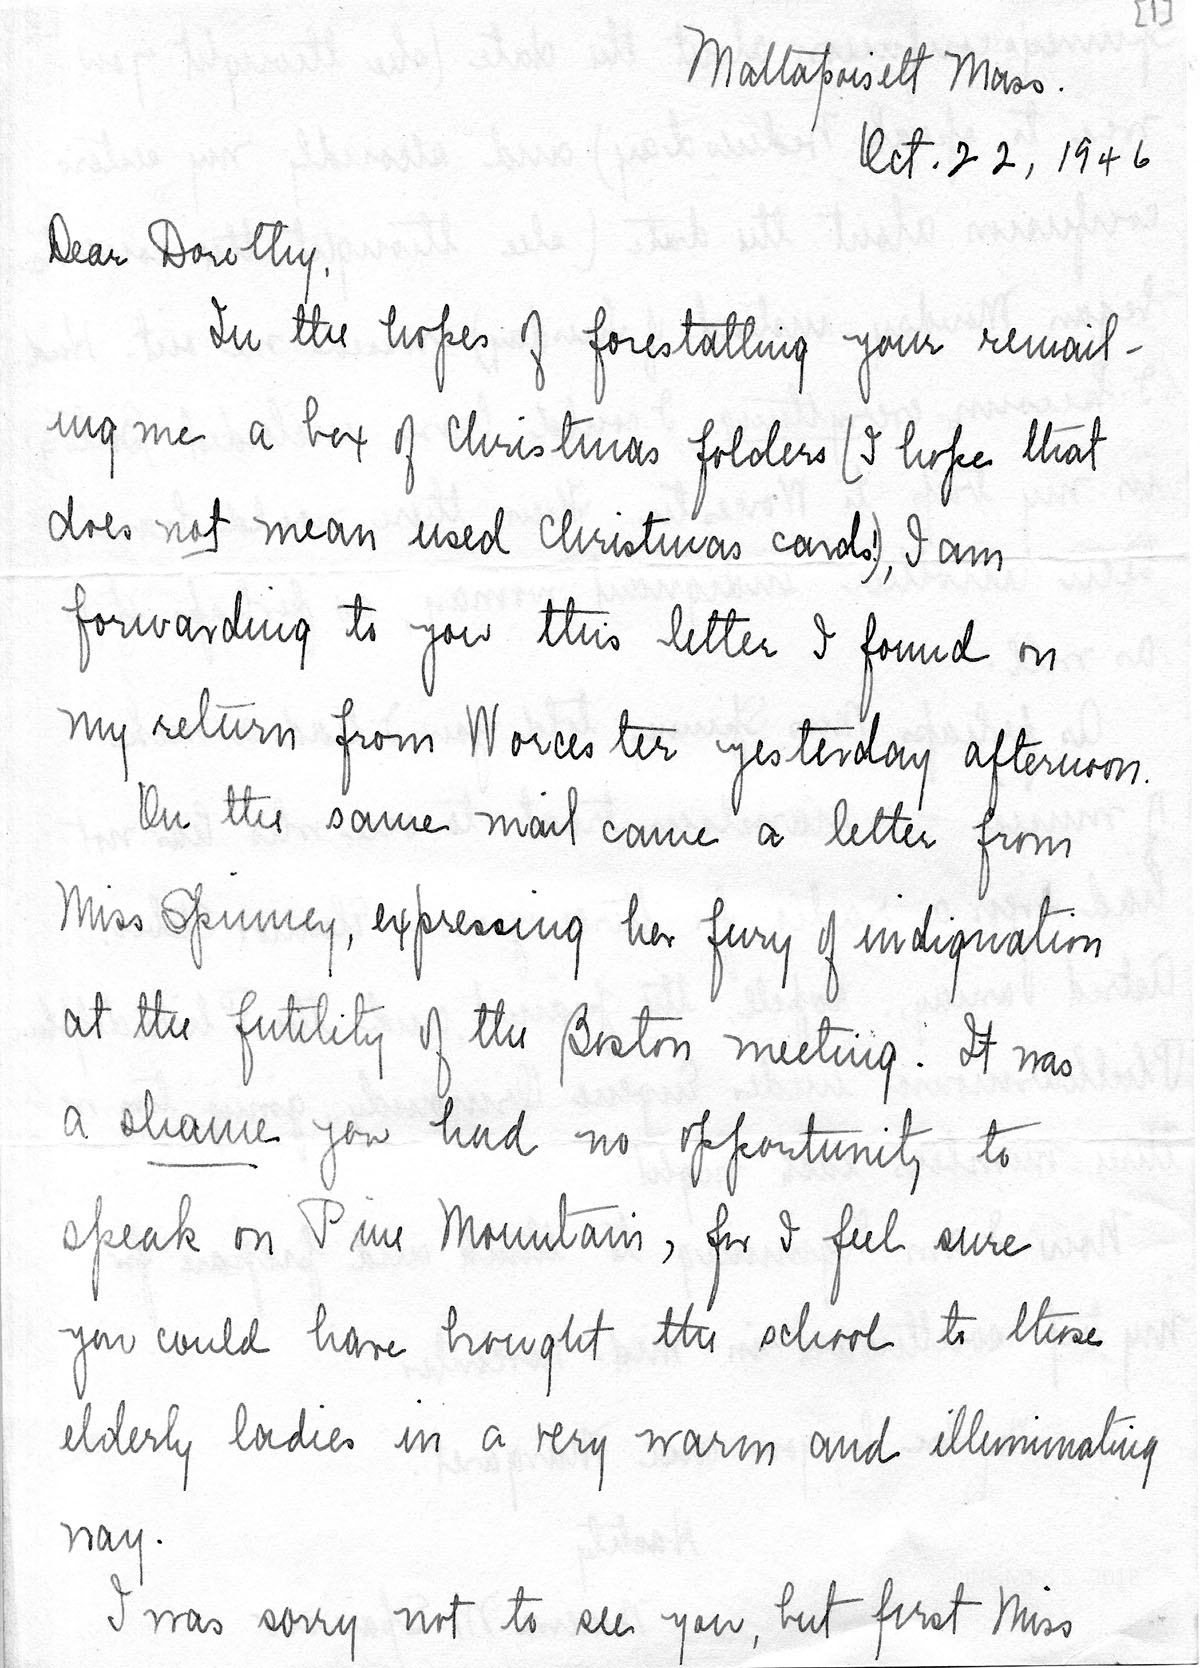 [1]
Mattapoisett Mass.
Oct. 22, 1946
Dear Dorothy,
In the hopes of forestalling your remail-
ing me a box of Christmas folders (I hope that
does not mean used Christmas cards!), I am
forwarding to you this letter I found on
my return from Worcester yesterday afternoon.
On the same mail came a letter from
Miss Spinney, expressing her fury of indignation
at the futility of the Boston meeting. It was
a shame you had no opportunity to
speak on Pine Mountain, for I feel sure
you could have brought the school to those
elderly ladies in a very warm and illuminating
way.
I was sorry not to see you, but first Miss